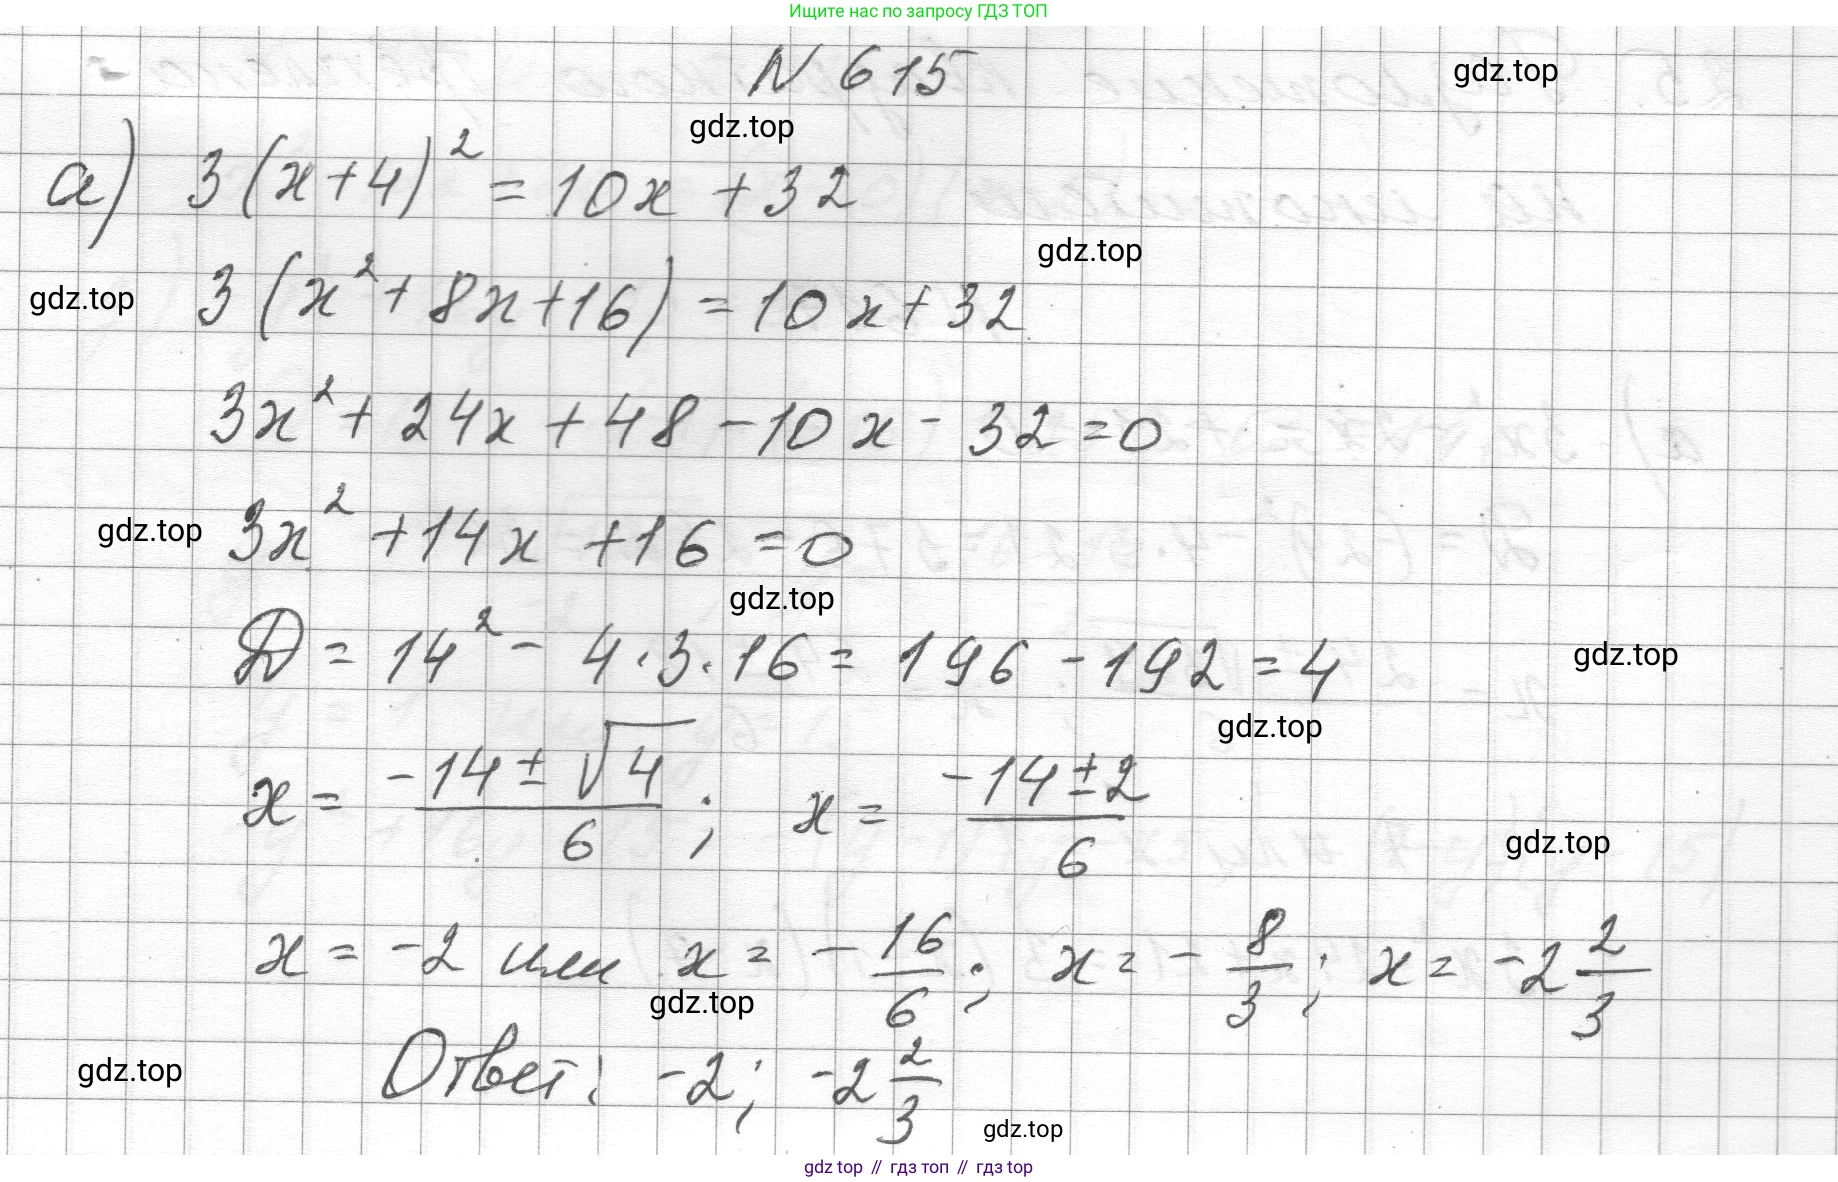 Ищите нас по запросу ГДЗ ТОП
N 615
gdz.top
gdz.top
а) 3(x+4)² = 10x + 32
gdz.top
gdz.top
3(x² + 8x + 16) = 10x + 32
3x² + 24x + 48 - 10x - 32 = 0
gdz.top
3x² + 14x + 16 = 0
gdz.top
D = 14² - 4·3·16 = 196 - 192 = 4
gdz.top
gdz.top
x = (-14 ± √4)/6 ; x = (-14 ± 2)/6
gdz.top
x = -2 или x = -16/6 ; x = -8/3 ; x = -2 2/3
gdz.top
gdz.top
Ответ: -2; -2 2/3
gdz.top
gdz.top // гдз топ // гдз top